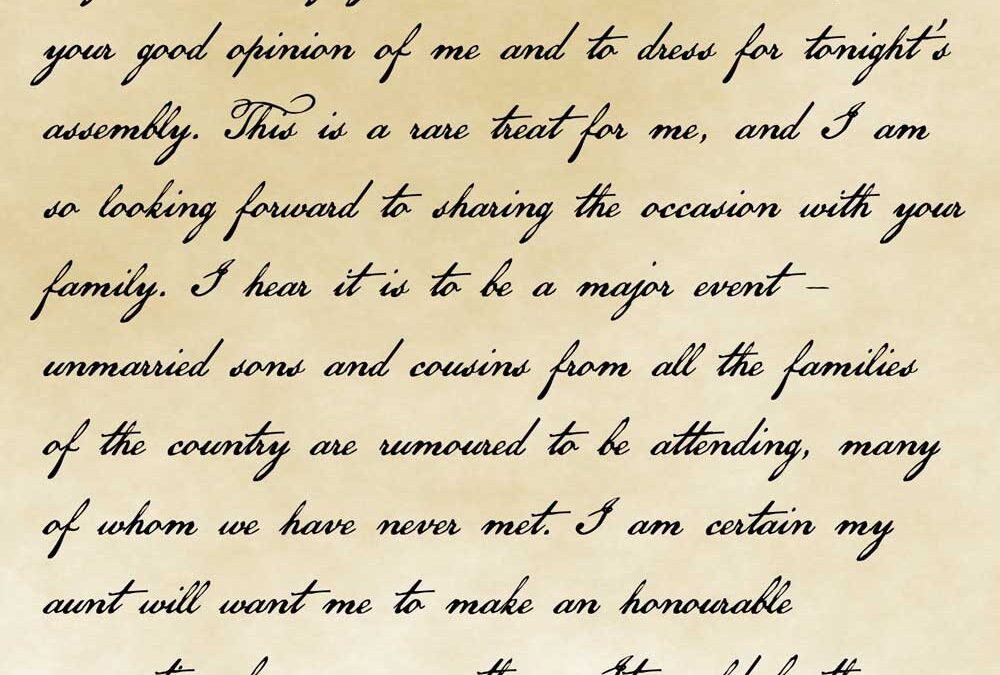 your good opinion of me and to dress for tonight's
assembly. This is a rare treat for me, and I am
so looking forward to sharing the occasion with your
family. I hear it is to be a major event –
unmarried sons and cousins from all the families
of the country are rumoured to be attending, many
of whom we have never met. I am certain my
aunt will want me to make an honourable